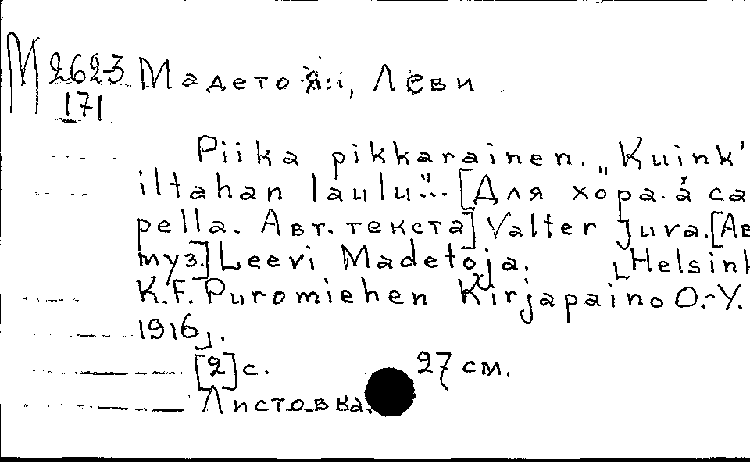 М 2623 Мадетойя, Леви
171
Piika pikkarainen. „Kuink'
iltahan laulu"... [Для хора à ca
pella. Авт. текста] Valter Juva. [Ав
муз.] Leevi Madetoja. [Helsinl
K.F. Puromiehen Kirjapaino O.-Y.
1916].
[2] с. 27 см.
Листовка.